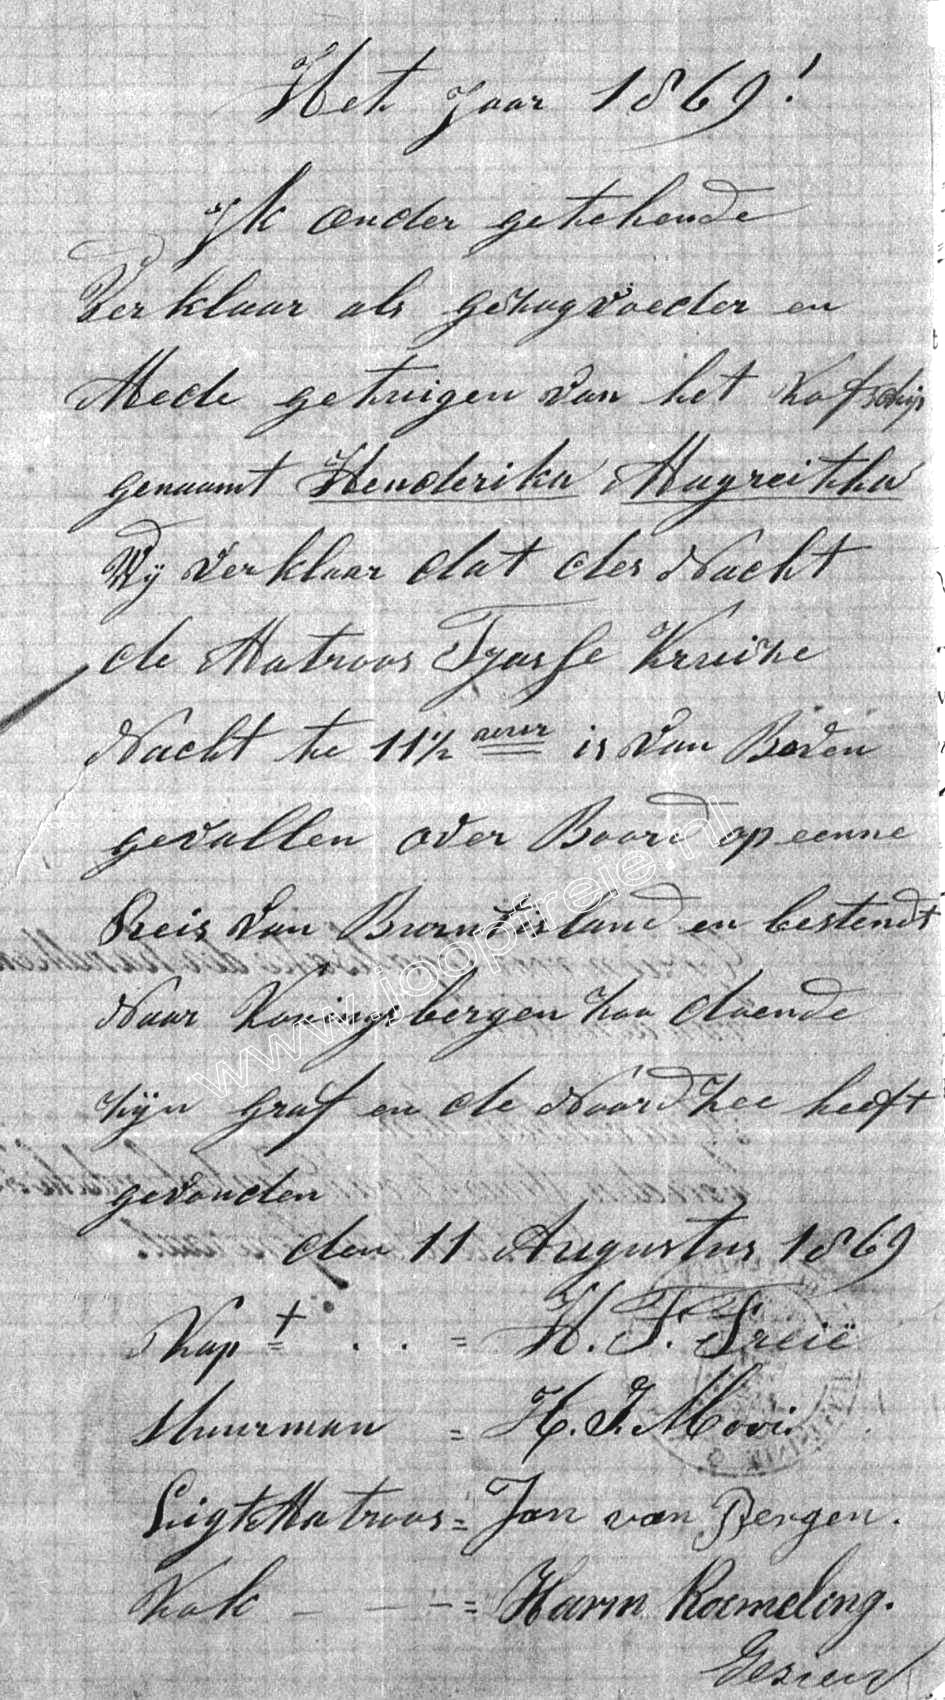 Het Jaar 1869!
Ik onder getekende
Verklaar als gezagvoeder en
Mede getuigen van het Kofschip
genaamt Henderika Magreitha
Wÿ verklaar dat des Nacht
de Matroos Tjasse Kruize
Nacht te 11½ uur is van Boven
gevallen over Boord op eenne
Reis van Burntisland en bestendt
Naar Konings bergen zoo doende
zÿn graf en de Noord zee heeft
gevonden
den 11 Augustus 1869
Kapt = . . = H. F. Freië
Stuurman = H. J. Mooi.
Ligt Matroos = Jan van Bergen.
Kok - - - = Harm Roemeling.
Gezien
www.joopfreie.nl